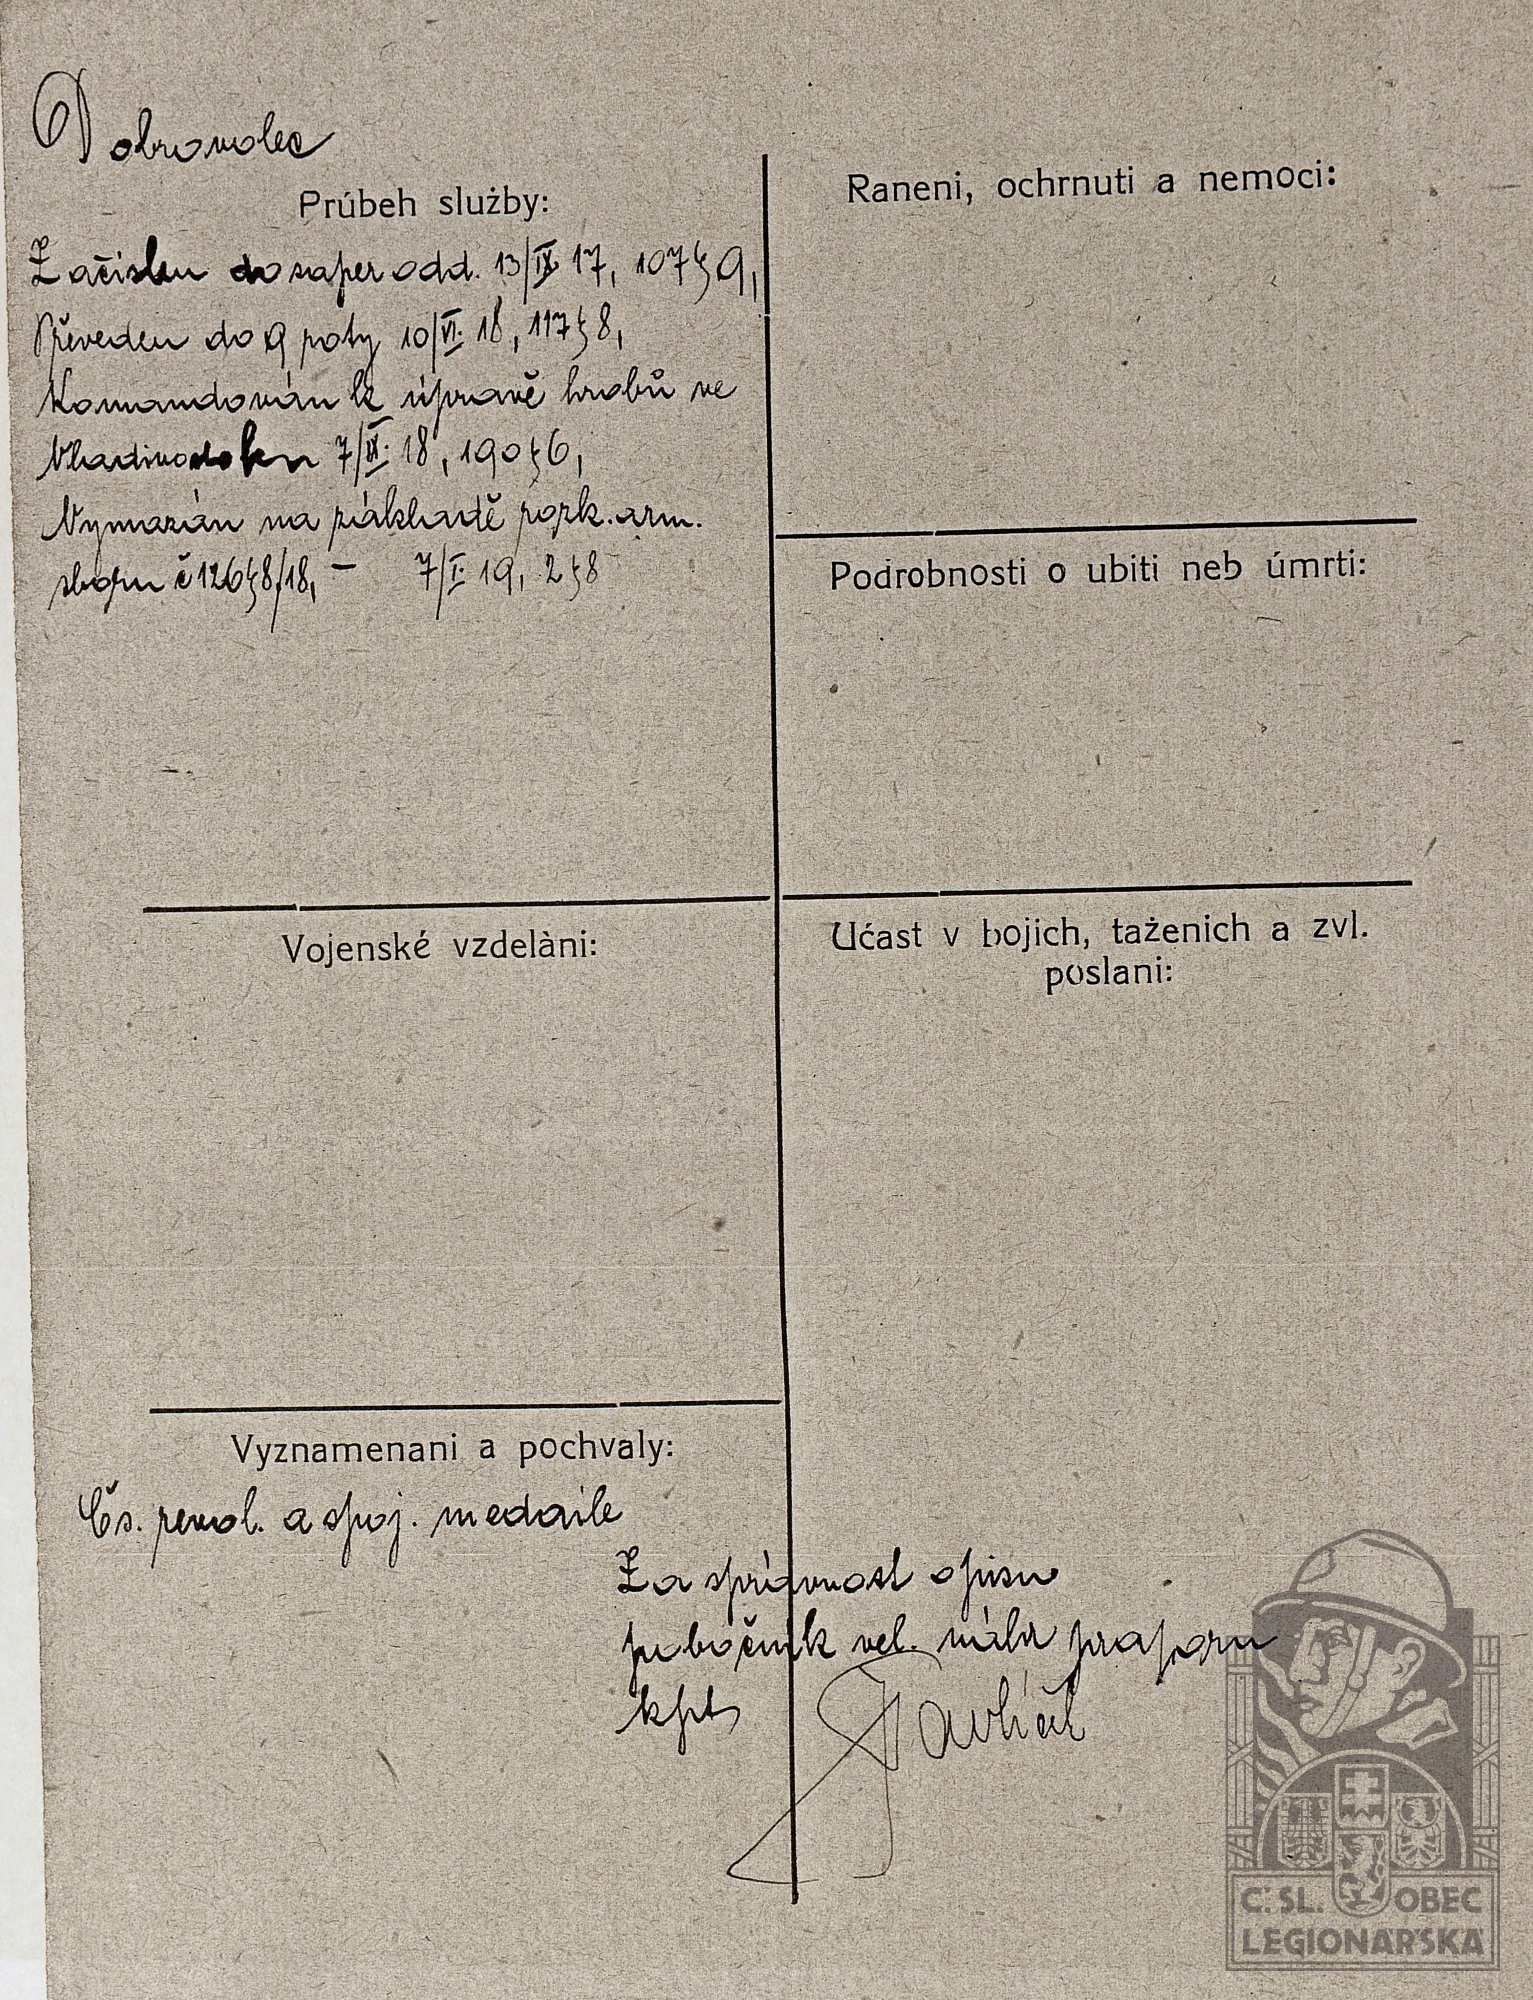 Dobrovolec
Průbeh služby:
Začislen do saper odd. 13/IX 17, 107 § 9,
Převeden do 9 roty 10/VI. 18, 117 § 8,
Komandován k úpravě hrobů ve
Vladivostoku 7/IX. 18, 190 § 6,
Vymazán na základě rozk. arm.
sboru č 126 § 8/18, — 7/I. 19, 2 § 8
Raneni, ochrnuti a nemoci:
Podrobnosti o ubiti neb úmrti:
Vojenské vzdelàni:
Učast v bojich, taženich a zvl.
poslani:
Vyznamenani a pochvaly:
Čs. revol. a spoj. medaile
Za správnost opisu
pobočník vel. náhr praporu
kpt Pavlíček
Č. SL. OBEC
LEGIONÁŘSKÁ